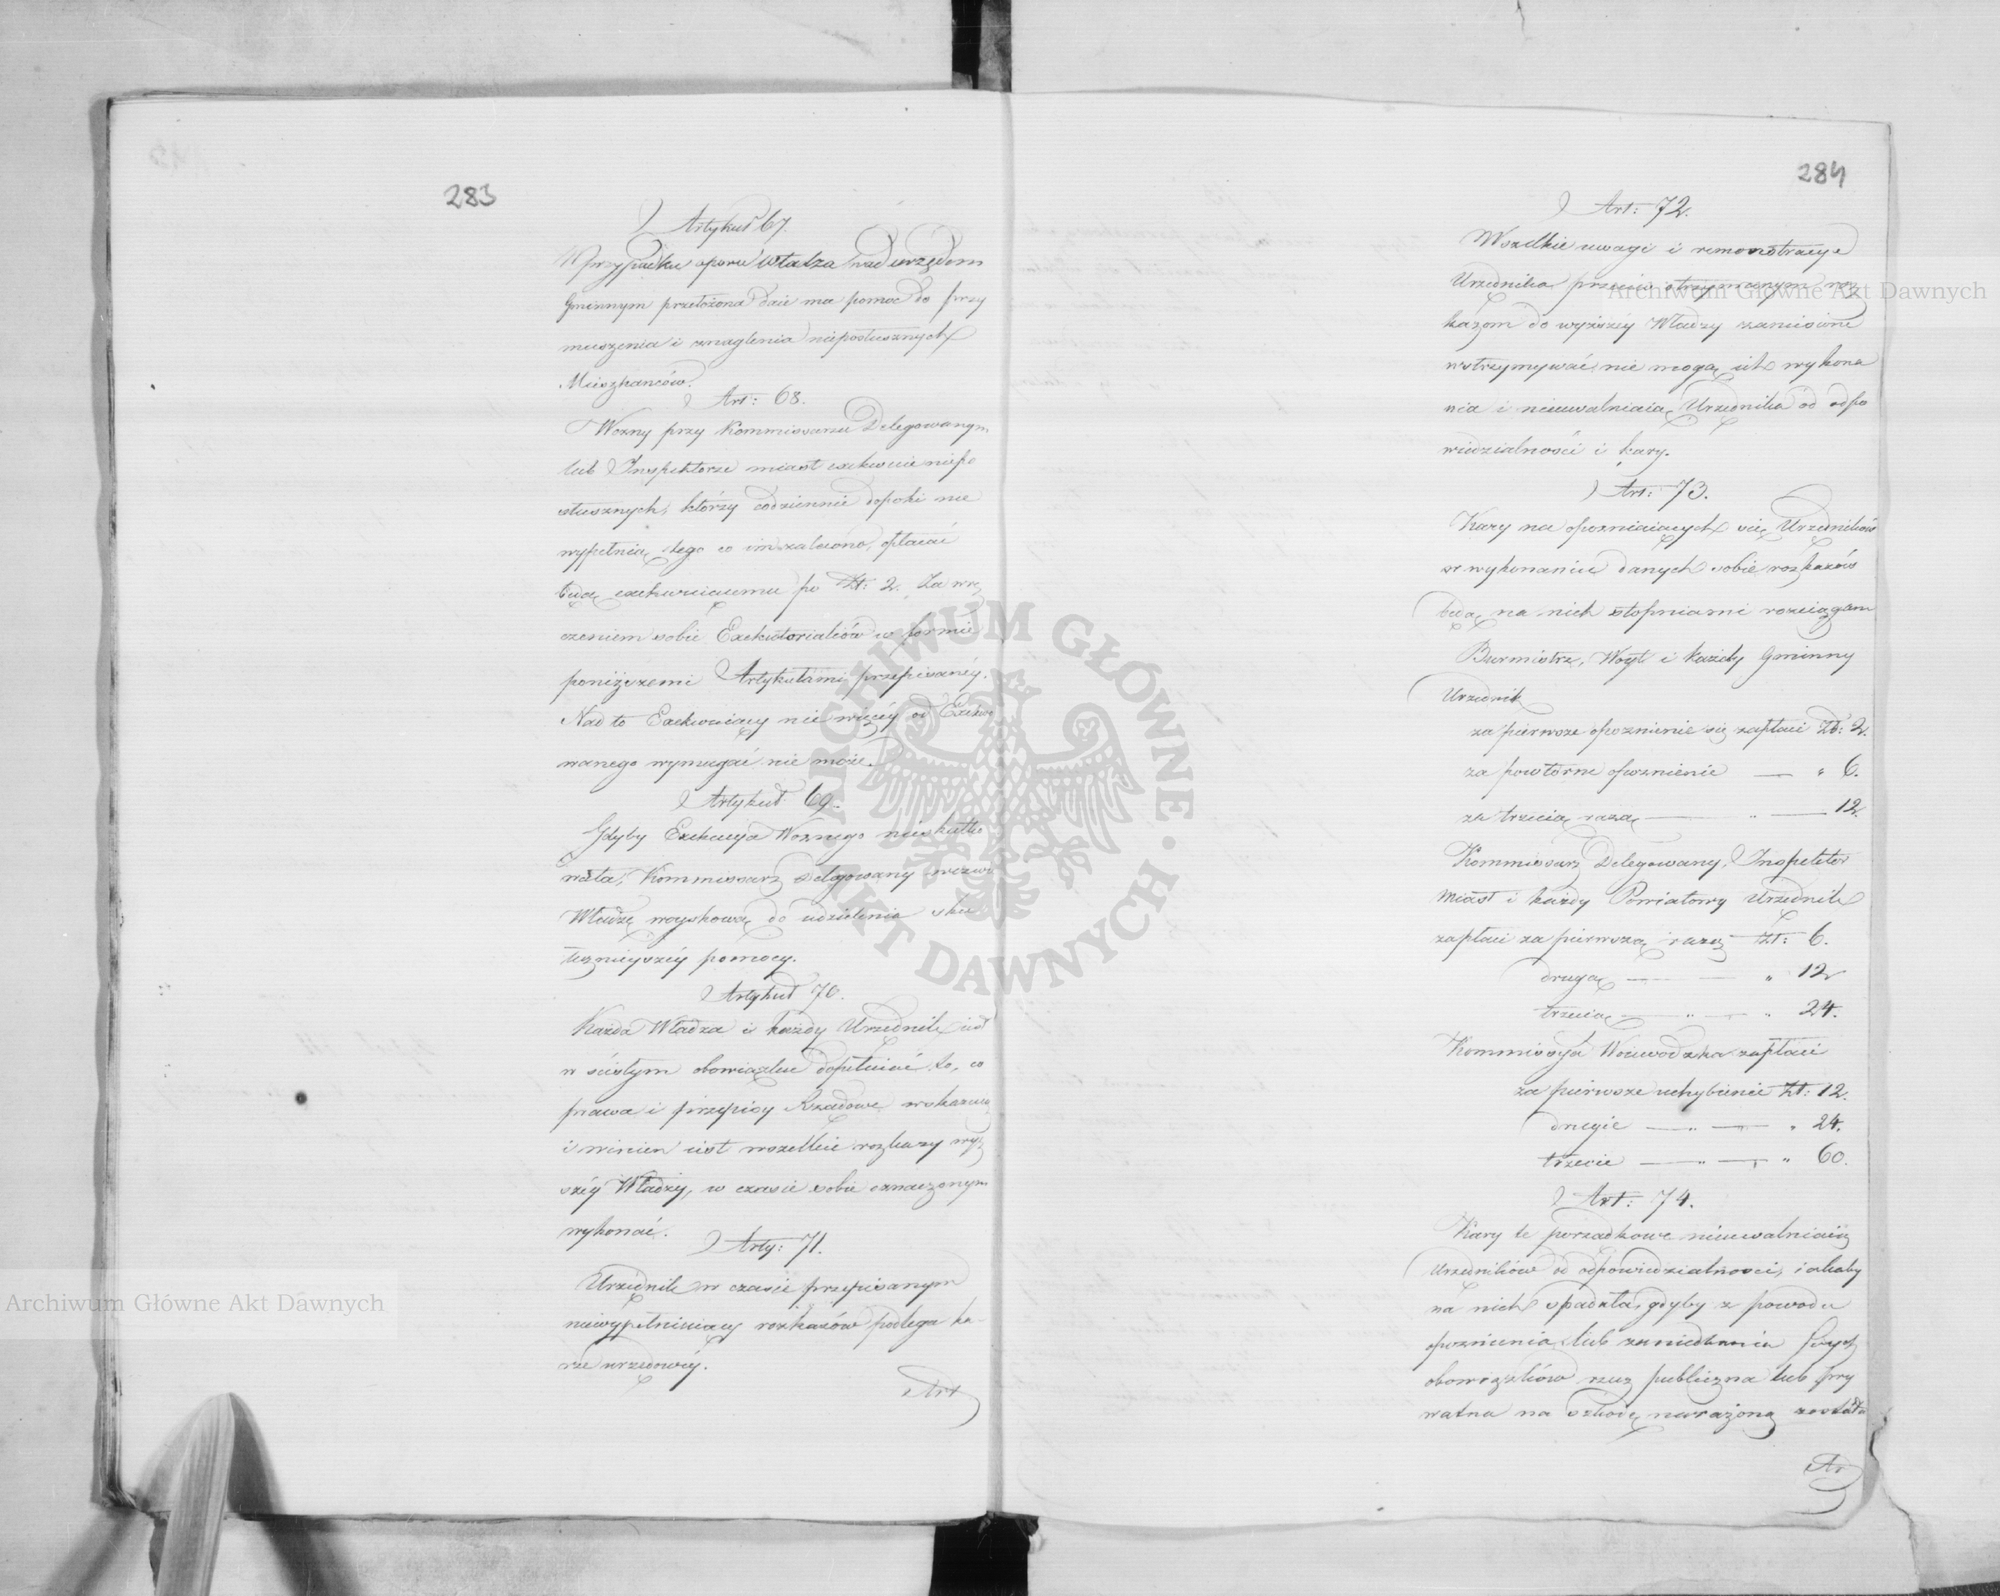 283
Artykuł 67.
W przypadku oporu Władza nad urzędem
Gminnym przełożona daie ma pomoc do przy
muszenia i znaglenia nieposłusznych
Mieszkanców.
Art: 68.
Wozny przy Kommissarzu Delegowanym
lub Inspektorze miast exekwuie niepo
słusznych, którzy codziennie dopoki nie
wypełnią tego co im zalecono, opłacać
będą exekwuiącemu po Zł: 2. Za wrę
czeniem sobie Exekutorialiów w formie
poniższemi Artykułami przepisanéy.
Nad to Exekwuiący nie więcéy od Exekwo
wanego wymagać nie może.
Artykuł 69.
Gdyby Exekucya Woznego nieskutko
wała, Kommissarz Delegowany wezwie
Władzę woyskową do udzielenia sku
tecznieyszéy pomocy.
Artykuł 70.
Każda Władza i każdy Urzędnik iest
w ścisłym obowiązku dopełniać to, co
prawa i przepisy Rządowe wskazuią
i winien iest wszelkie rozkazy wyż
széy Władzy, w czasie sobie oznaczonym
wykonać.
Arty: 71.
Urzędnik w czasie przepisanym
niewypełniaiący rozkazów podlega ka-
rze urzędowéy.
Art
284
Art: 72.
Wszelkie uwagi i remonstracye
Urzędnika przeciw otrzymanym roz
kazom do wyższéy Władzy zaniesione
wstrzymywać nie mogą ich wykona
nia i nieuwalniaią Urzędnika od odpo
wiedzialności i kary.
Art: 73.
Kary na opozniaiących się Urzędników
w wykonaniu danych sobie rozkazów
będą na nich stopniami rozciągane
Burmistrz, Woyt i każdy Gminny
Urzędnik
za pierwsze opoznienie się zapłaci Zł: 2.
za powtórne opoznienie — " 6.
za trzecią razą — " — 12.
Kommissarz Delegowany, Inspektor
Miast i każdy Powiatowy Urzędnik
zapłaci za pierwszą razą Zł: 6.
drugą — — " 12
trzecią — " — " 24.
Kommissya Woiewodzka zapłaci
za pierwsze uchybienie Zł: 12.
drugie — " — " 24.
trzecie — " — " 60.
Art: 74.
Kary te porządkowe nieuwalniaią
Urzędników od odpowiedzialności, iakaby
na nich spadała, gdyby z powodu
opoznienia lub zaniedbania
obowiązków rzecz publiczna lub pry
watna na szkodę narażoną została
Ar
Archiwum Główne Akt Dawnych
Archiwum Główne Akt Dawnych
ARCHIWUM GŁÓWNE AKT DAWNYCH